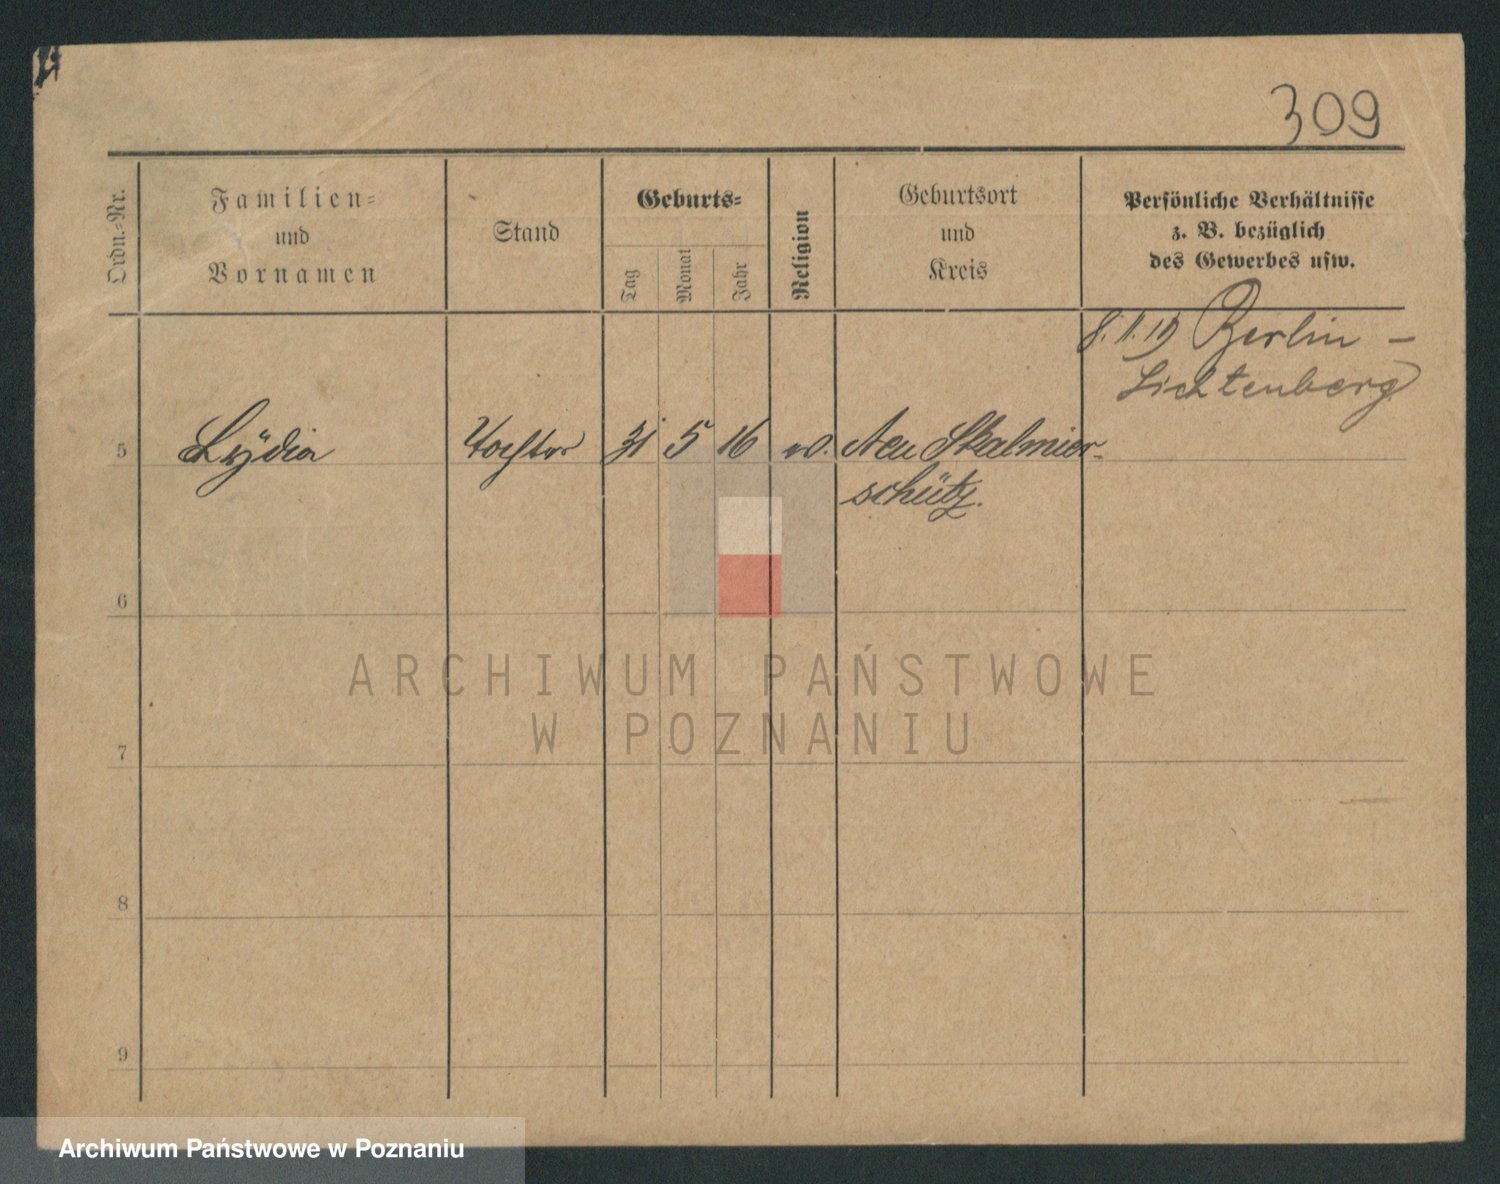 309
Ordn.-Nr.
Familien-
und
Vornamen
Stand
Geburts-
Tag
Monat
Jahr
Religion
Geburtsort
und
Kreis
Persönliche Verhältnisse
z. B. bezüglich
des Gewerbes usw.
8. 11. 19 Berlin -
Lichtenberg
5 Lydia Tochter 31 5 16 ev. Neu Skalmier-
schütz.
6
ARCHIWUM PAŃSTWOWE
W POZNANIU
7
8
9
Archiwum Państwowe w Poznaniu